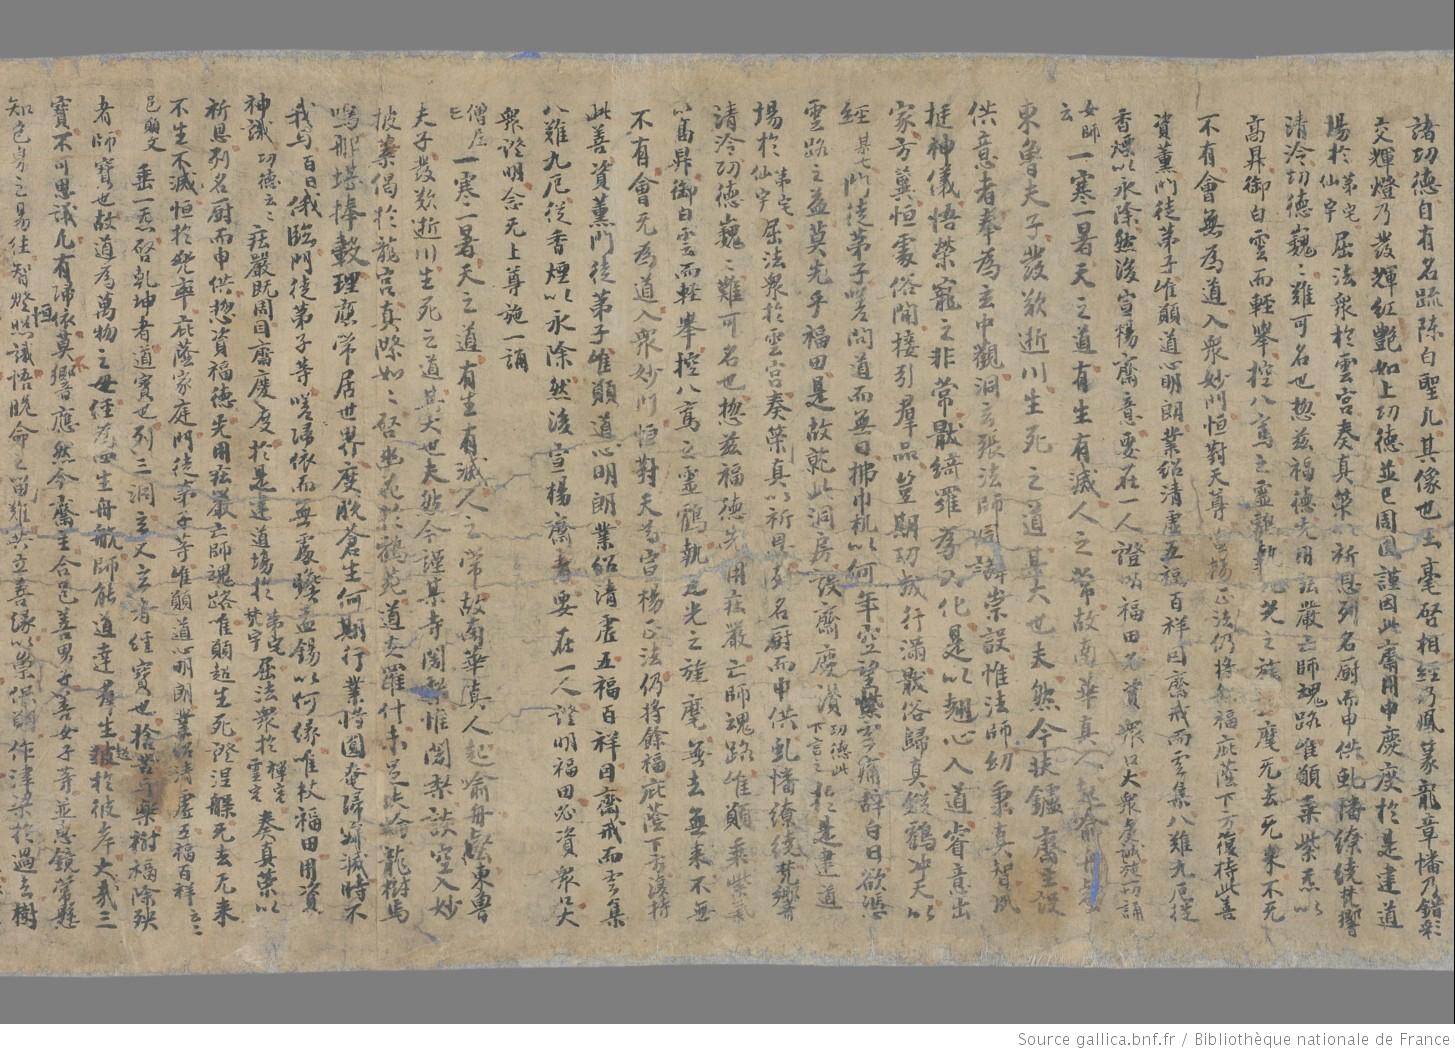 諸功德自有名疏陳白聖凡其像也玉毫啓相經乃鳳篆龍章幡乃錯彩
交輝燈乃發輝紅艷如上功德並已周圓謹因此齋用申慶度於是建道
場於弟宅仙宇屈法衆於雲宮奏真榮以祈恩列名廚而申供虬幡繚繞梵響
清泠功德巍〻難可名也惣兹福德先用莊嚴亡師魂路惟願乘紫炁以
高昇御白雲而輕舉控八鸞之靈鶴執九光之旌麾无去无來不死
不有會無為道入衆妙門恒對天尊宮揚正法仍將餘福庇蔭下方復持此善
資薰門徒弟子惟願道心明朗業紹清虛五福百祥因齋戒而雲集八難九厄從
香煙以永除然後宣楊齋意要在一人證明福田必資衆口大衆虔誠施一切誦
女師云一寒一暑天之道有生有滅人之常故南華真人起喻舟壑
東魯夫子發歎逝川生死之道其大也夫然今扶鑪齋主設
供意者奉為玄中觀洞玄張法師同請崇設惟法師幼秉真智夙
挺神儀悟榮寵之非常猒綺羅為入化是以翹心入道睿意出
家方冀恒處俗開接引羣品豈期功成行滿猒俗歸真鏘鶴沖天以
經某七門徒弟子等問道而無日拂巾机以何年空望雲痛辭白日欲憑
雲路之益莫先乎福田是故乾此洞房設齋慶讚功德此下言之於是建道
場於弟宅仙宇屈法衆於雲宮奏榮真以祈恩列名廚而申供虬幡繚繞梵響
清泠功德巍〻難可名也惣兹福德先用莊嚴亡師魂路惟願乘紫氣
以高昇御白雲而輕舉控八鸞之靈鶴執九光之旌麾無去無來不無
不有會无為道入衆妙門恒對天尊宮楊正法仍將餘福庇蔭下方復持
此善資薰門徒弟子惟願道心明朗業紹清虛五福百祥因齋戒而雲集
八難九厄從香煙以永除然後宣楊齋意要在一人證明福田必資衆口大
衆證明念无上尊施一誦
僧尼亡一寒一暑天之道有生有滅人之常故南華真人起喻舟壑東魯
夫子發歎逝川生死之道其大也夫然今謹某寺闍梨惟闍梨談空入妙
披葉偈於龍宮真際如〻啓坐花於鶴苑道奕羅什未足比倫龍樹馬
鳴那堪捧轂理應常居世界度脫蒼生何期行業將圓奄歸寂滅時不
我与百日俄臨門徒弟子等嗟歸依而無處瞻盂錫以何緣唯杖福田用資
神識功德云〻莊嚴既周因齋慶度於是建道場於弟宅梵宇屈法衆於禪宅靈宮奏真榮以
祈恩列名廚而申供惣資福德先用莊嚴亡師魂路唯願超生死證涅槃无去无來
不生不滅恒於兜率庇蔭家庭門徒弟子等惟願道心明朗業紹清虛五福百祥云〻
邑願文垂一炁啓乾坤者道寶也列三洞玄文之者經寶也捨苦与樂樹福除殃
者師寶也故道為萬物之母經為四生舟航師能道達羣生超彼於彼岸大哉三
寶不可思議凡有歸依莫不響應然今齋主合邑善男子善女子等並悬鏡常懸
知色身之易住智燈恒照識悟脫命之留難共立善緣以榮保調作津梁於過去樹
Source gallica.bnf.fr / Bibliothèque nationale de France